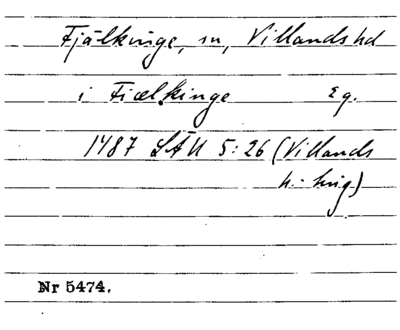 Fjälkinge, sn, Villands hd
i Fiælkinge Eg.
1487 LÄU 5:26 (Villands
h. ting)
Nr 5474.